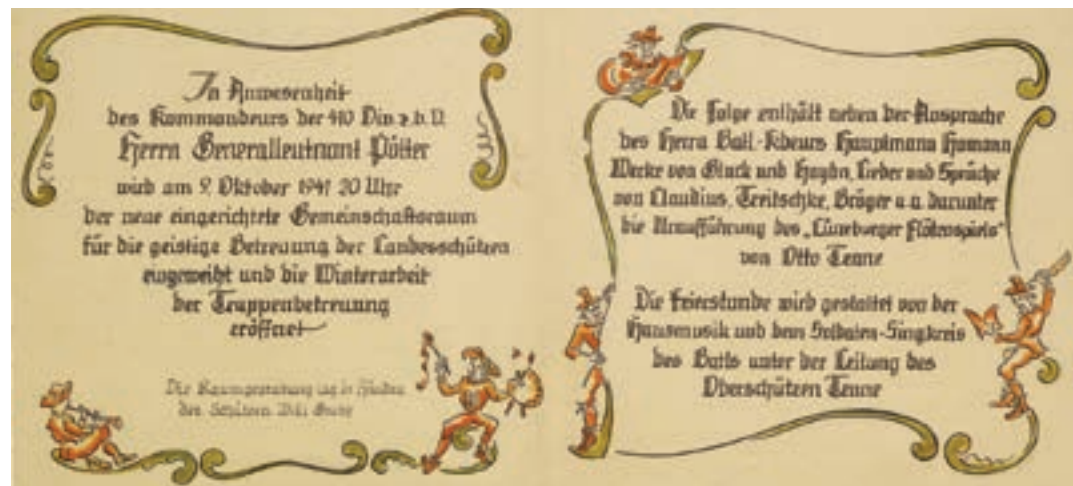 In Anwesenheit
des Kommandeurs der 410 Div. z. b. V.
Herrn Generalleutnant Pötter
wird am 9. Oktober 1941 20 Uhr
der neue eingerichtete Gemeinschaftsraum
für die geistige Betreuung der Landesschützen
eingeweiht und die Winterarbeit
der Truppenbetreuung
eröffnet
Die Raumgestaltung lag in Händen
des Schützen Willi
Die Folge enthält neben der Ansprache
des Herrn Batl.-Kdeurs Hauptmann Hamann
Werke von Gluck und Haydn, Lieder und Sprüche
von Claudius, Treitschke, Bröger u. a. darunter
die Uraufführung des „Lüneburger Flötenspiels“
von Otto Tenne
Die Feierstunde wird gestaltet von der
Hausmusik und dem Soldaten-Singkreis
des Batls unter der Leitung des
Oberschützen Tenne